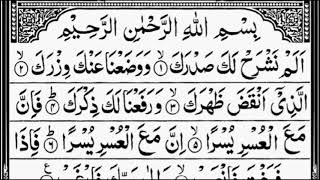 بِسْمِ اللهِ الرَّحْمٰنِ الرَّحِيْمِ
اَلَمْ نَشْرَحْ لَكَ صَدْرَكَ ۝۱ وَوَضَعْنَا عَنْكَ وِزْرَكَ ۝۲
الَّذِيْٓ اَنْقَضَ ظَهْرَكَ ۝۳ وَرَفَعْنَا لَكَ ذِكْرَكَ ۝۴ فَاِنَّ
مَعَ الْعُسْرِ يُسْرًا ۝۵ اِنَّ مَعَ الْعُسْرِ يُسْرًا ۝۶ فَاِذَا